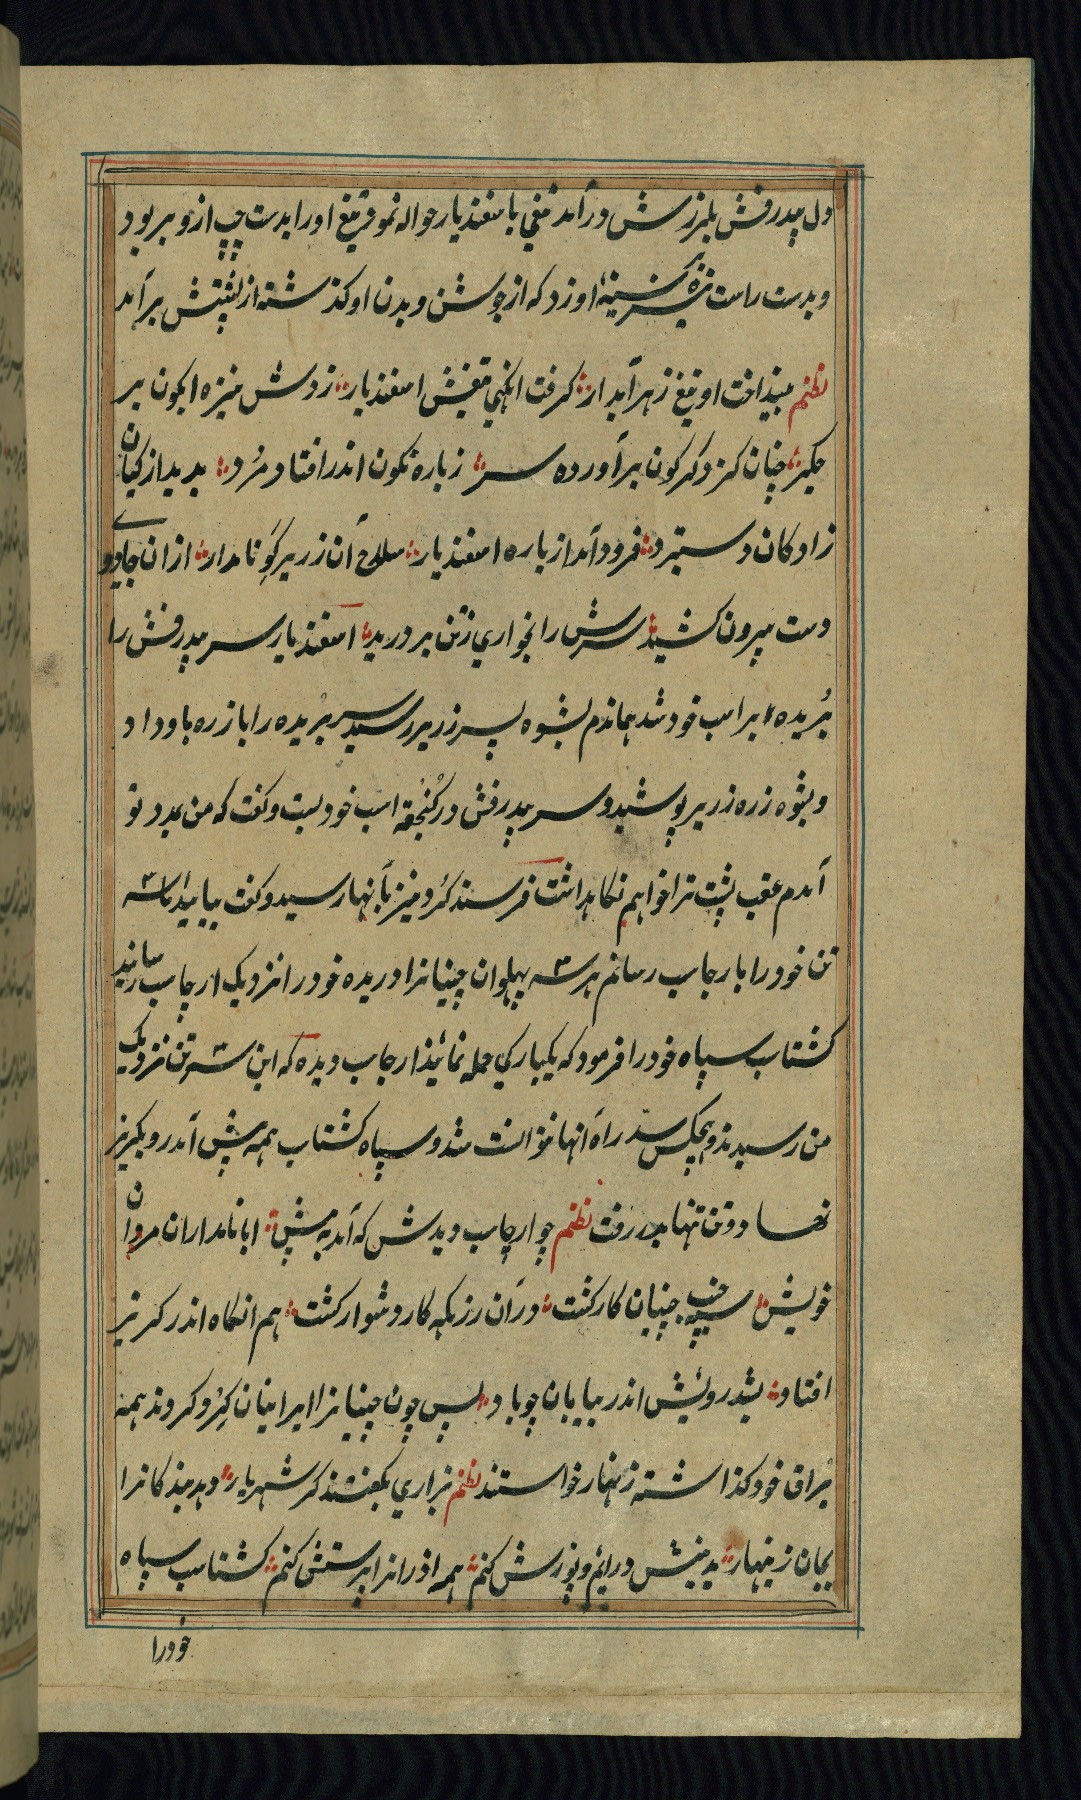 دل بیدرفش بلرزش درآمد تیغی باسفندیار حواله نمود تیغ او را بدست چپ ازو بربود
و بدست راست نیزه بر سینهٔ او زد که از جوشن و بدن او گذشته از پشتش برآمد
نظم بینداخت او تیغ زهر آبدار گرفت انگهی تیغش اسفندیار زدش نیزه ایکون بر
جگر چنان کز دگر کون برآورده سر ز باره نگون اندر افتاد و مرد بدید از کیان
زادکان دستبرد فرود آمد از باره اسفندیار سلاح آن زریر گو نامدار ازان جادوی
دست بیرون کشید سرش را بخواری ز تن بر درید اسفندیار سر بیدرفش را
بریده بر اسب خود شد هماندم بشوه پسر زریر رسید سر بریده را با زره باو داد
و بشوه زره زریر پوشید و سر بیدرفش در کنجقه اسب خود بست و گفت که من بمدد تو
آمدم عقب پشت ترا خواهم نگاهداشت فرسند گرد نیز بآنها رسید و گفت بیایید تا سه
تن خود را بارجاسب رسانیم هر سه پهلوان چینیانرا دریده خود را نزدیک ارجاسب رسانیدند
گشتاسب سپاه خود را فرمود که یکبارگی حمله نمائید ارجاسب دیده که این سه تن نزدیک
من رسیدند و هیچکس سد راه آنها نتوانست شد و سپاه گشتاسب همه پیش آمد رو بگریز
نهاد و تن تنها بدر رفت نظم چو ارجاسب دیدش که آمد به پیش ابا نامداران مردان
خویش سپه جنب جنبان کار گشت در آن رزمگه کار دشوار گشت هم انگاه اندر گریز
افتاد بشد رویش اندر بیابان چو باد پس چون چینیانرا ایرانیان گرد کردند همه
یراق خود گذاشته زنهار خواستند نظم بزاری بگفتند کر شهریار دهد بندگانرا
بجان زینهار بدینش درآئیم و پوزش کنیم همه اذرانرا پرستش کنیم گشتاسب سپاه
خودرا